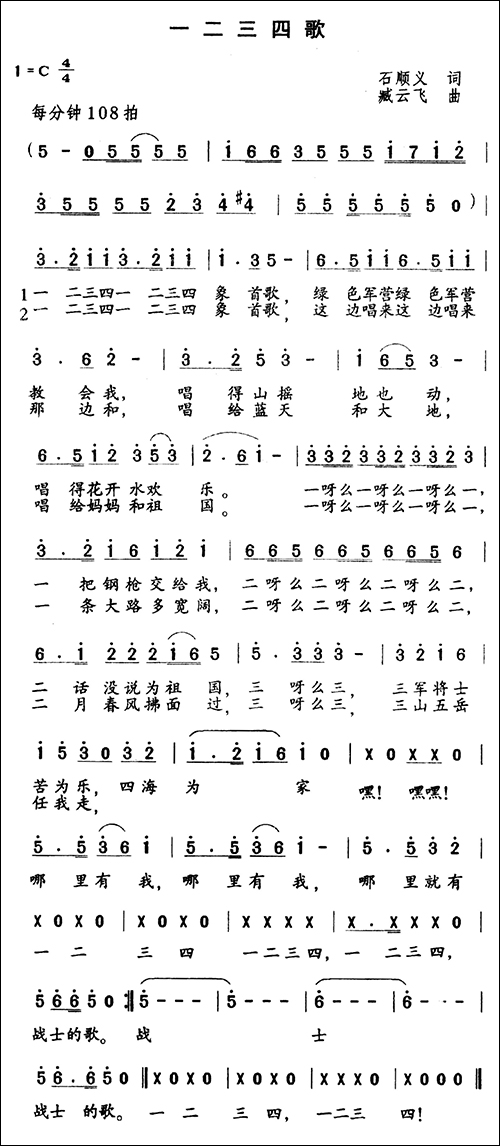 一二三四歌
1=C 4/4
石顺义 词
臧云飞 曲
每分钟108拍
(5 - 0 5 5 5 5 | i 6 6 3 5 5 5 i 7 i 2
3 5 5 5 5 2 3 4 #4 | 5 5 5 5 5 5 5 0 ) |
3. 2 i i 3. 2 i i | i. 3 5 - | 6. 5 i i 6. 5 i i |
1 一 二三四一 二三四 象 首歌, 绿 色军营绿 色军营
2 一 二三四一 二三四 象 首歌, 这 边唱来这 边唱来
3. 6 2 - | 3. 2 5 3 - | i 6 5 3 - |
教 会我, 唱 得山摇 地也 动,
那 边和, 唱 给蓝天 和大 地,
6. 5 i 2 3 5 3 | 2. 6 i - | 3 3 2 3 3 2 3 3 2 3 |
唱 得花开 水欢 乐。 一呀么一呀么一呀么一,
唱 给妈妈 和祖 国。 一呀么一呀么一呀么一,
3. 2 i 6 i 2 i | 6 6 5 6 6 5 6 6 5 6 |
一 把钢枪交给我, 二呀么二呀么二呀么二,
一 条大路多宽阔, 二呀么二呀么二呀么二,
6. i 2 2 2 i 6 5 | 5. 3 3 3 - | 3 2 i 6 |
二 话 没说为祖 国, 三 呀么三, 三军将士
二 月 春风拂面 过, 三 呀么三, 三山五岳
i 5 3 0 3 2 | i. 2 i 6 i 0 | X 0 X X 0 |
苦为乐, 四海 为 家 嘿! 嘿嘿!
任我走,
5. 5 3 6 i | 5. 5 3 6 i - | 5. 5 3 2 |
哪 里有 我, 哪 里有 我, 哪 里就有
X 0 X 0 | X 0 X 0 | X X X X | X. X X X 0 |
一 二 三 四 一二三四, 一 二三四,
5 6 6 5 0 :‖ 5 - - - | 5 - - - | 6 - - - | 6 - - - |
战士的歌。 战 士
5 6. 6 5 0 ‖ X 0 X 0 | X 0 X 0 | X X X 0 | X 0 0 0 ‖
战士 的歌。 一 二 三 四, 一二三 四!